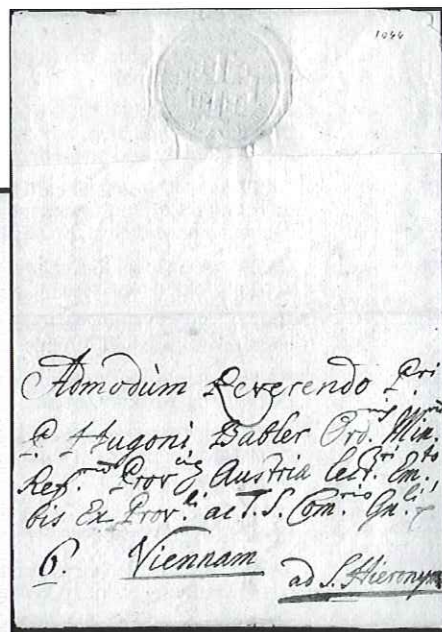 1044
Admodùm Reverendo P.ri
P. Hugoni Babler Ord.nis Min.
Ref.rum Prov.ciæ Austria Lect.ri Em.to,
bis Ex Prov.li ac T.S. Com.rio Gn.li
6. Viennam ad S. Hieronym